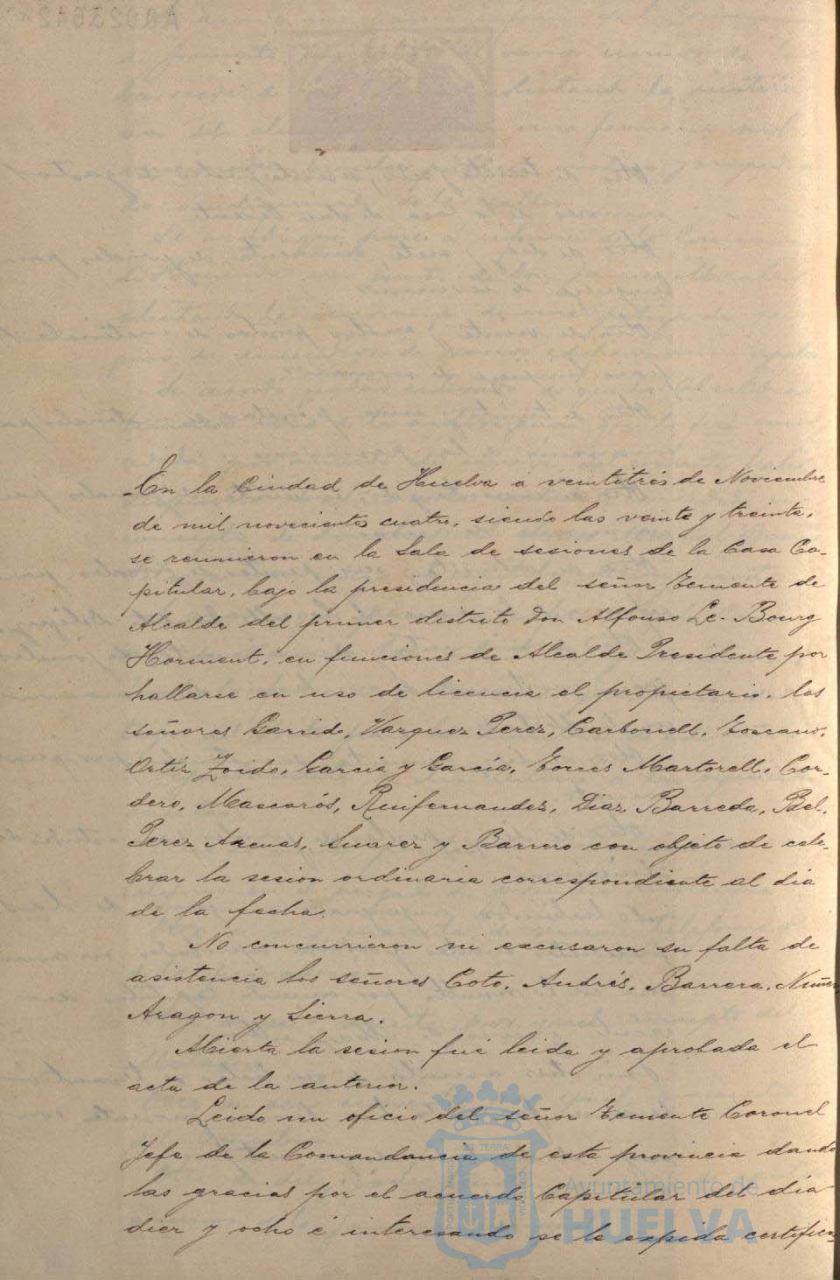 En la Ciudad de Huelva á veintitrés de Noviembre
de mil novecientos cuatro, siendo las veinte y treinta,
se reunieron en la Sala de sesiones de la Casa Ca-
pitular, bajo la presidencia del señor Teniente de
Alcalde del primer distrito Don Alfonso Le-Bourg
Horment, en funciones de Alcalde Presidente por
hallarse en uso de licencia el propietario, los
señores Garrido, Vazquez Perez, Carbonell, Toscano,
Ortiz, Zoido, Garcia y García, Torres Martorell, Cor-
dero, Mascarós, Ruifernandez, Diaz Barreda, Bel,
Perez Arenas, Suarez y Barrero con objeto de cele-
brar la sesion ordinaria correspondiente al dia
de la fecha.
No concurrieron ni excusaron su falta de
asistencia los señores Coto, Andrés, Barrera, Nuñez
Aragon y Sierra.
Abierta la sesion fué leida y aprobada el
acta de la anterior.
Leido un oficio del señor Teniente Coronel
Jefe de la Comandancia de esta provincia dando
las gracias por el acuerdo Capitular del dia
diez y ocho é interesando se le expida certifica-
Ayuntamiento de
HUELVA
A0023642